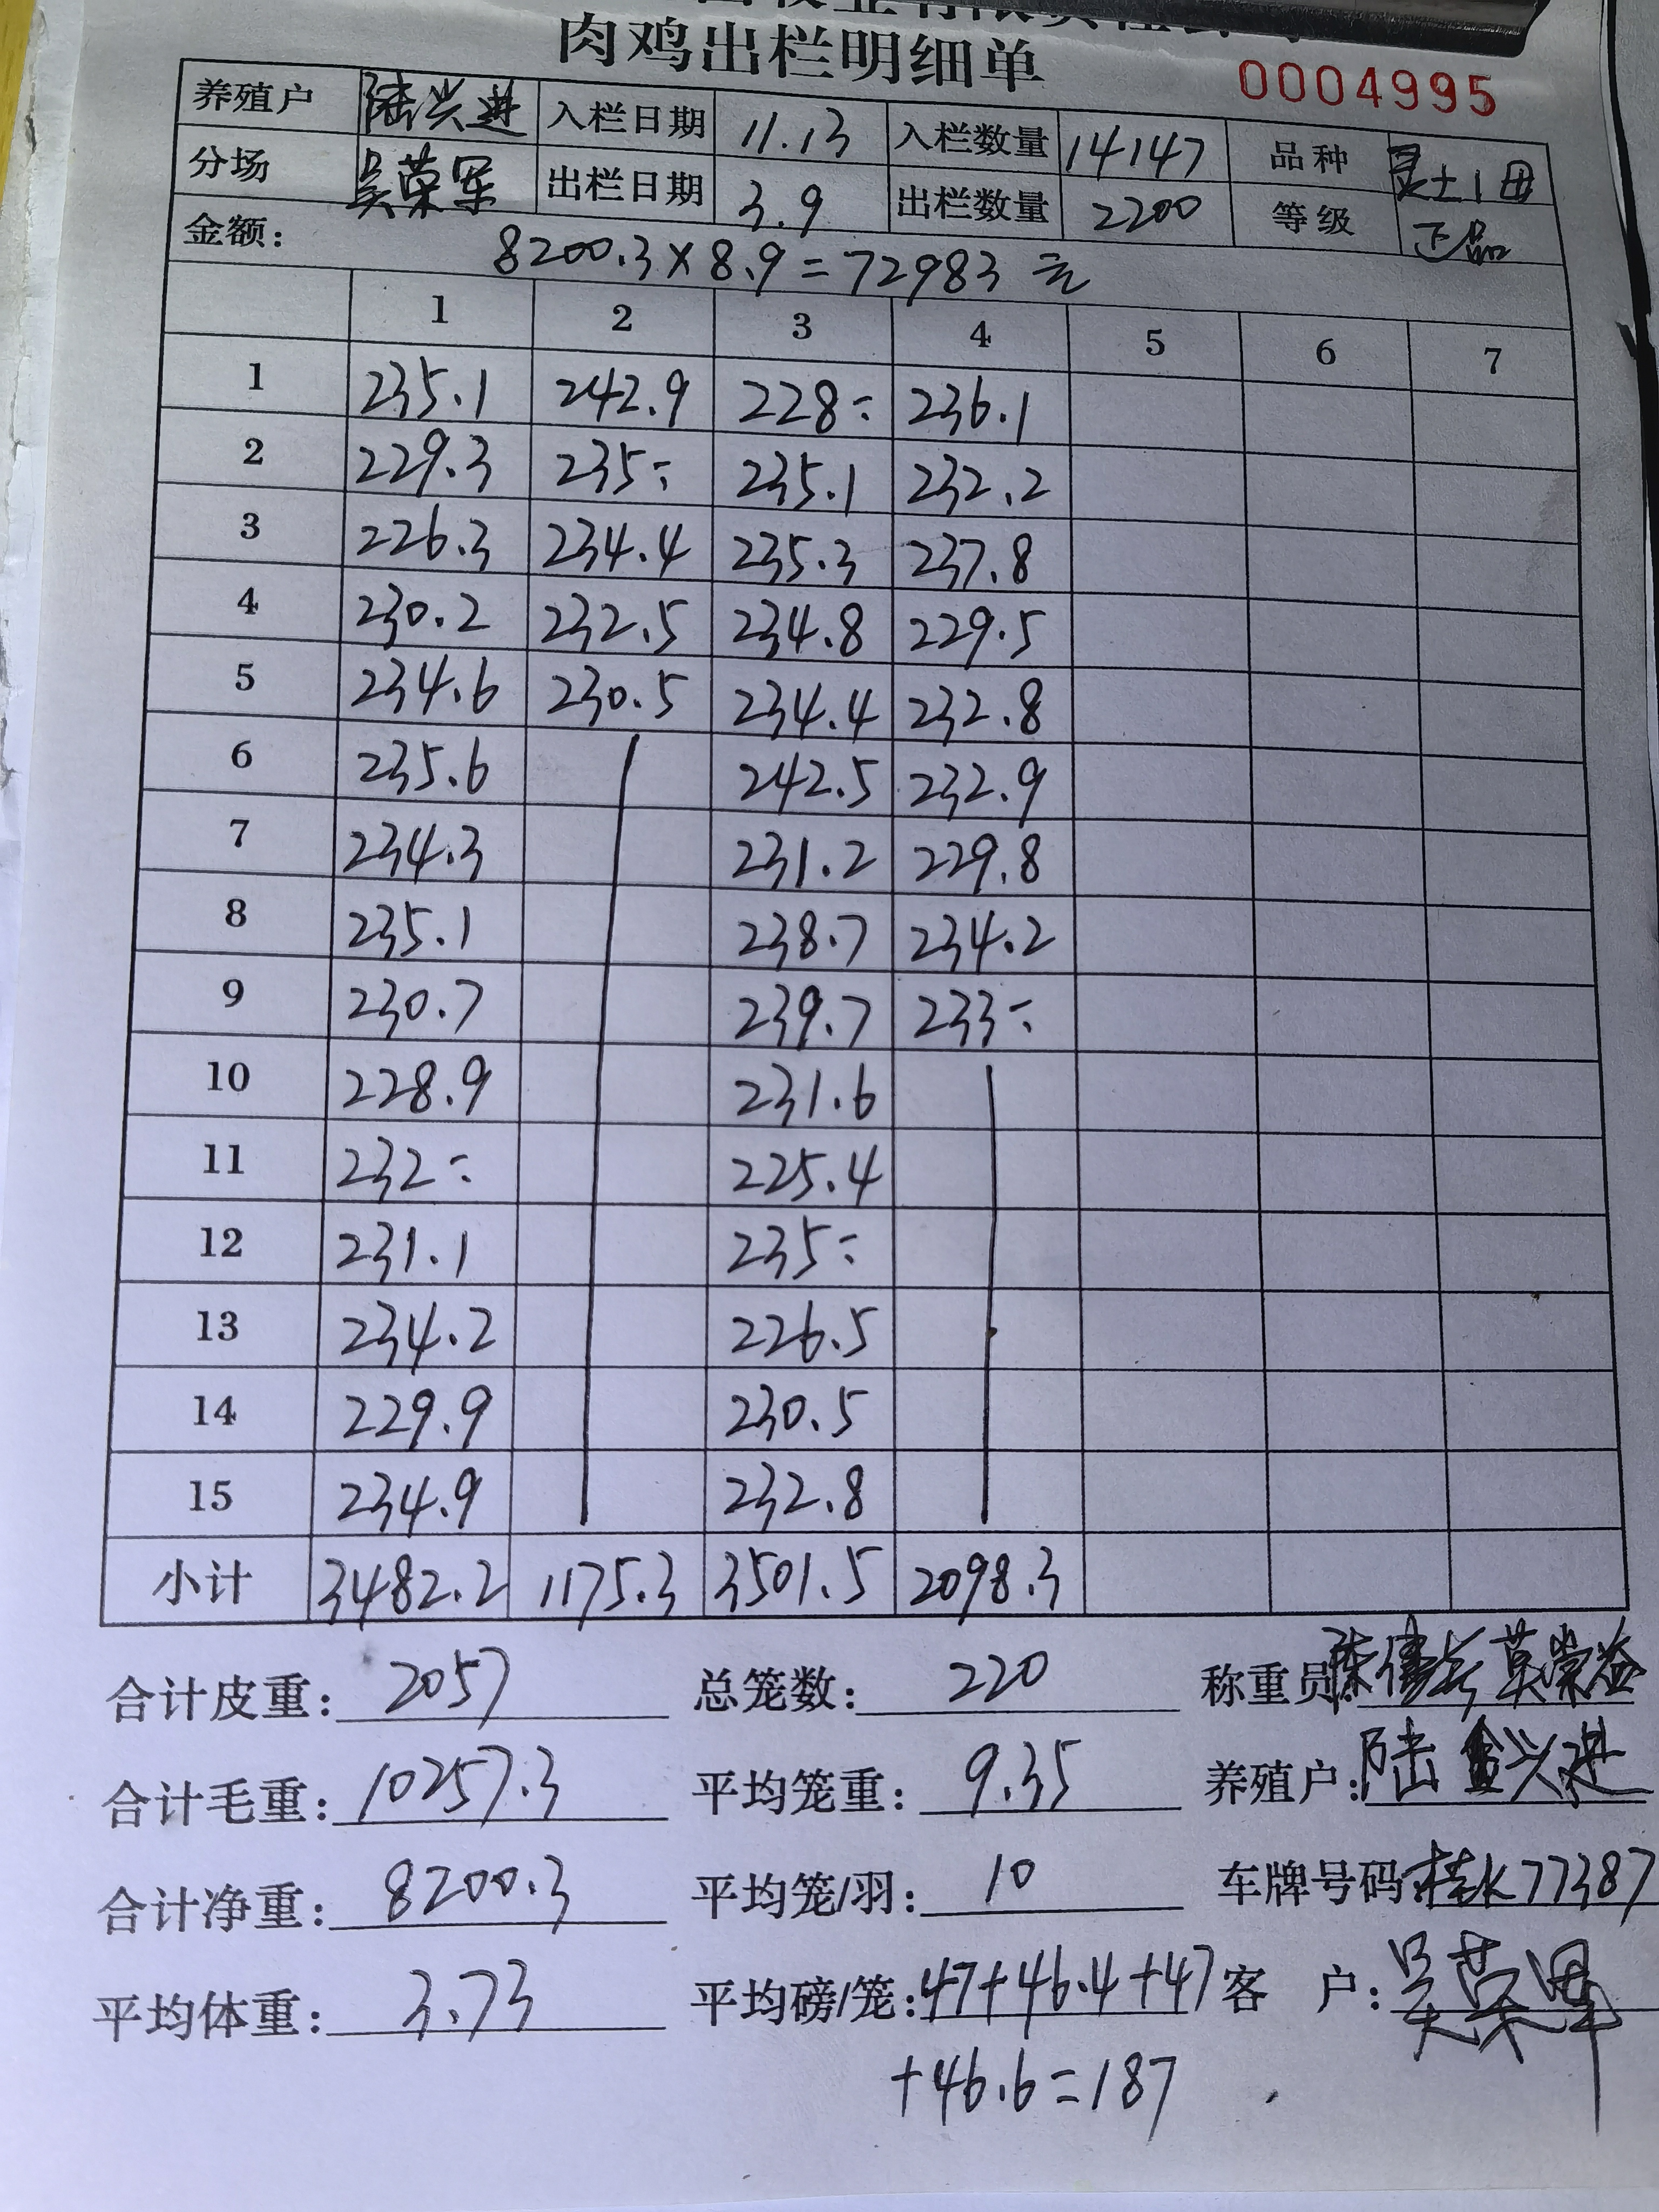 肉鸡出栏明细单
0004995
养殖户 陆兴进 入栏日期 11.13 入栏数量 14147 品种 灵土1母
分场 吴荣军 出栏日期 3.9 出栏数量 2200 等级 正品
金额: 8200.3×8.9=72983元
1 2 3 4 5 6 7
1 235.1 242.9 228÷ 236.1
2 229.3 235÷ 235.1 232.2
3 226.3 234.4 235.3 237.8
4 230.2 232.5 234.8 229.5
5 234.6 230.5 234.4 232.8
6 235.6 242.5 232.9
7 234.3 231.2 229.8
8 235.1 238.7 234.2
9 230.7 239.7 233÷
10 228.9 231.6
11 232÷ 225.4
12 231.1 235÷
13 234.2 226.5
14 229.9 230.5
15 234.9 232.8
小计 3482.2 1175.3 3501.5 2098.3
合计皮重: 2057 总笼数: 220 称重员:
合计毛重: 10257.3 平均笼重: 9.35 养殖户: 陆兴进
合计净重: 8200.3 平均笼/羽: 10 车牌号码: 桂K77387
平均体重: 3.73 平均磅/笼: 47+46.4+47 客 户: 吴荣军
+46.6=187